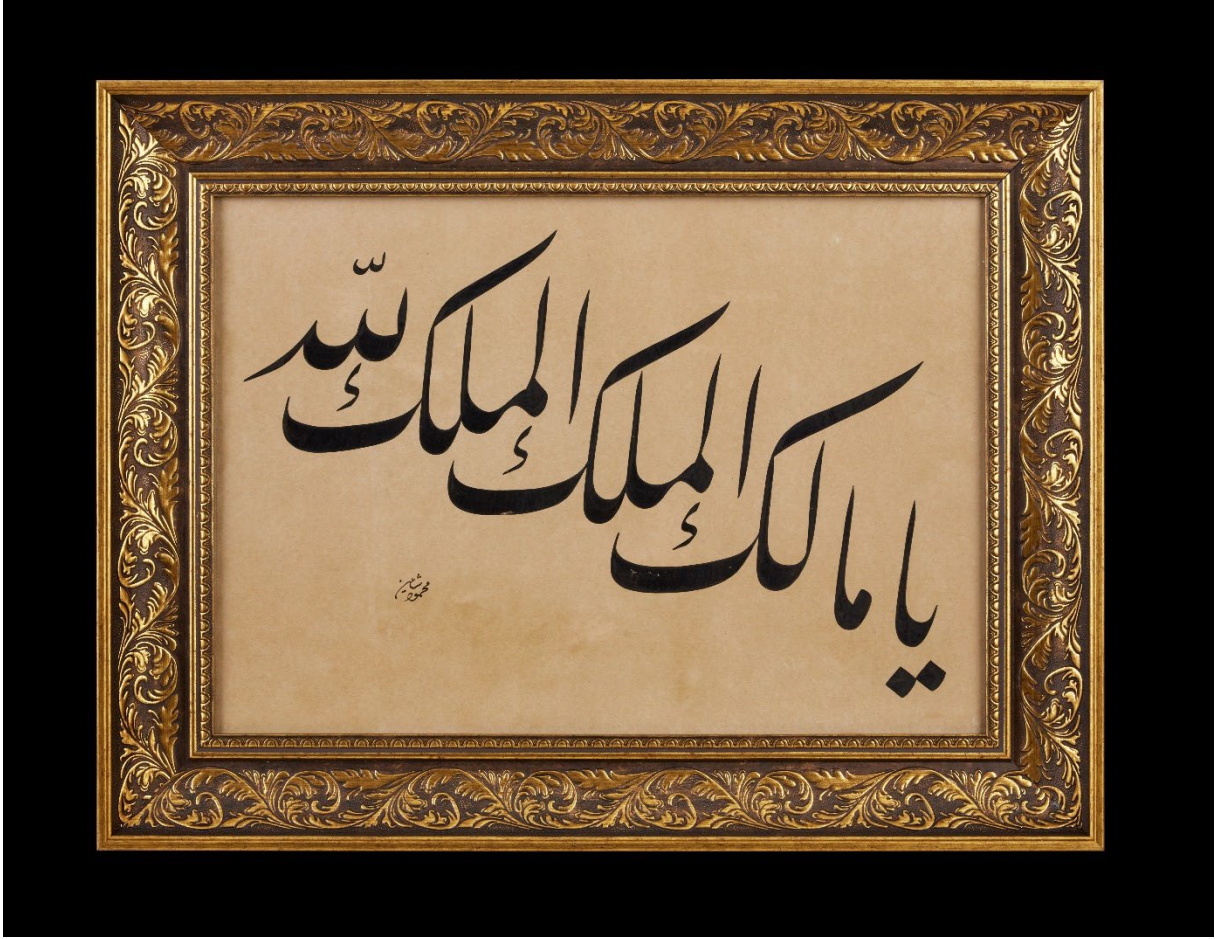 يا مالك الملك الملك لله
محمود شاهين